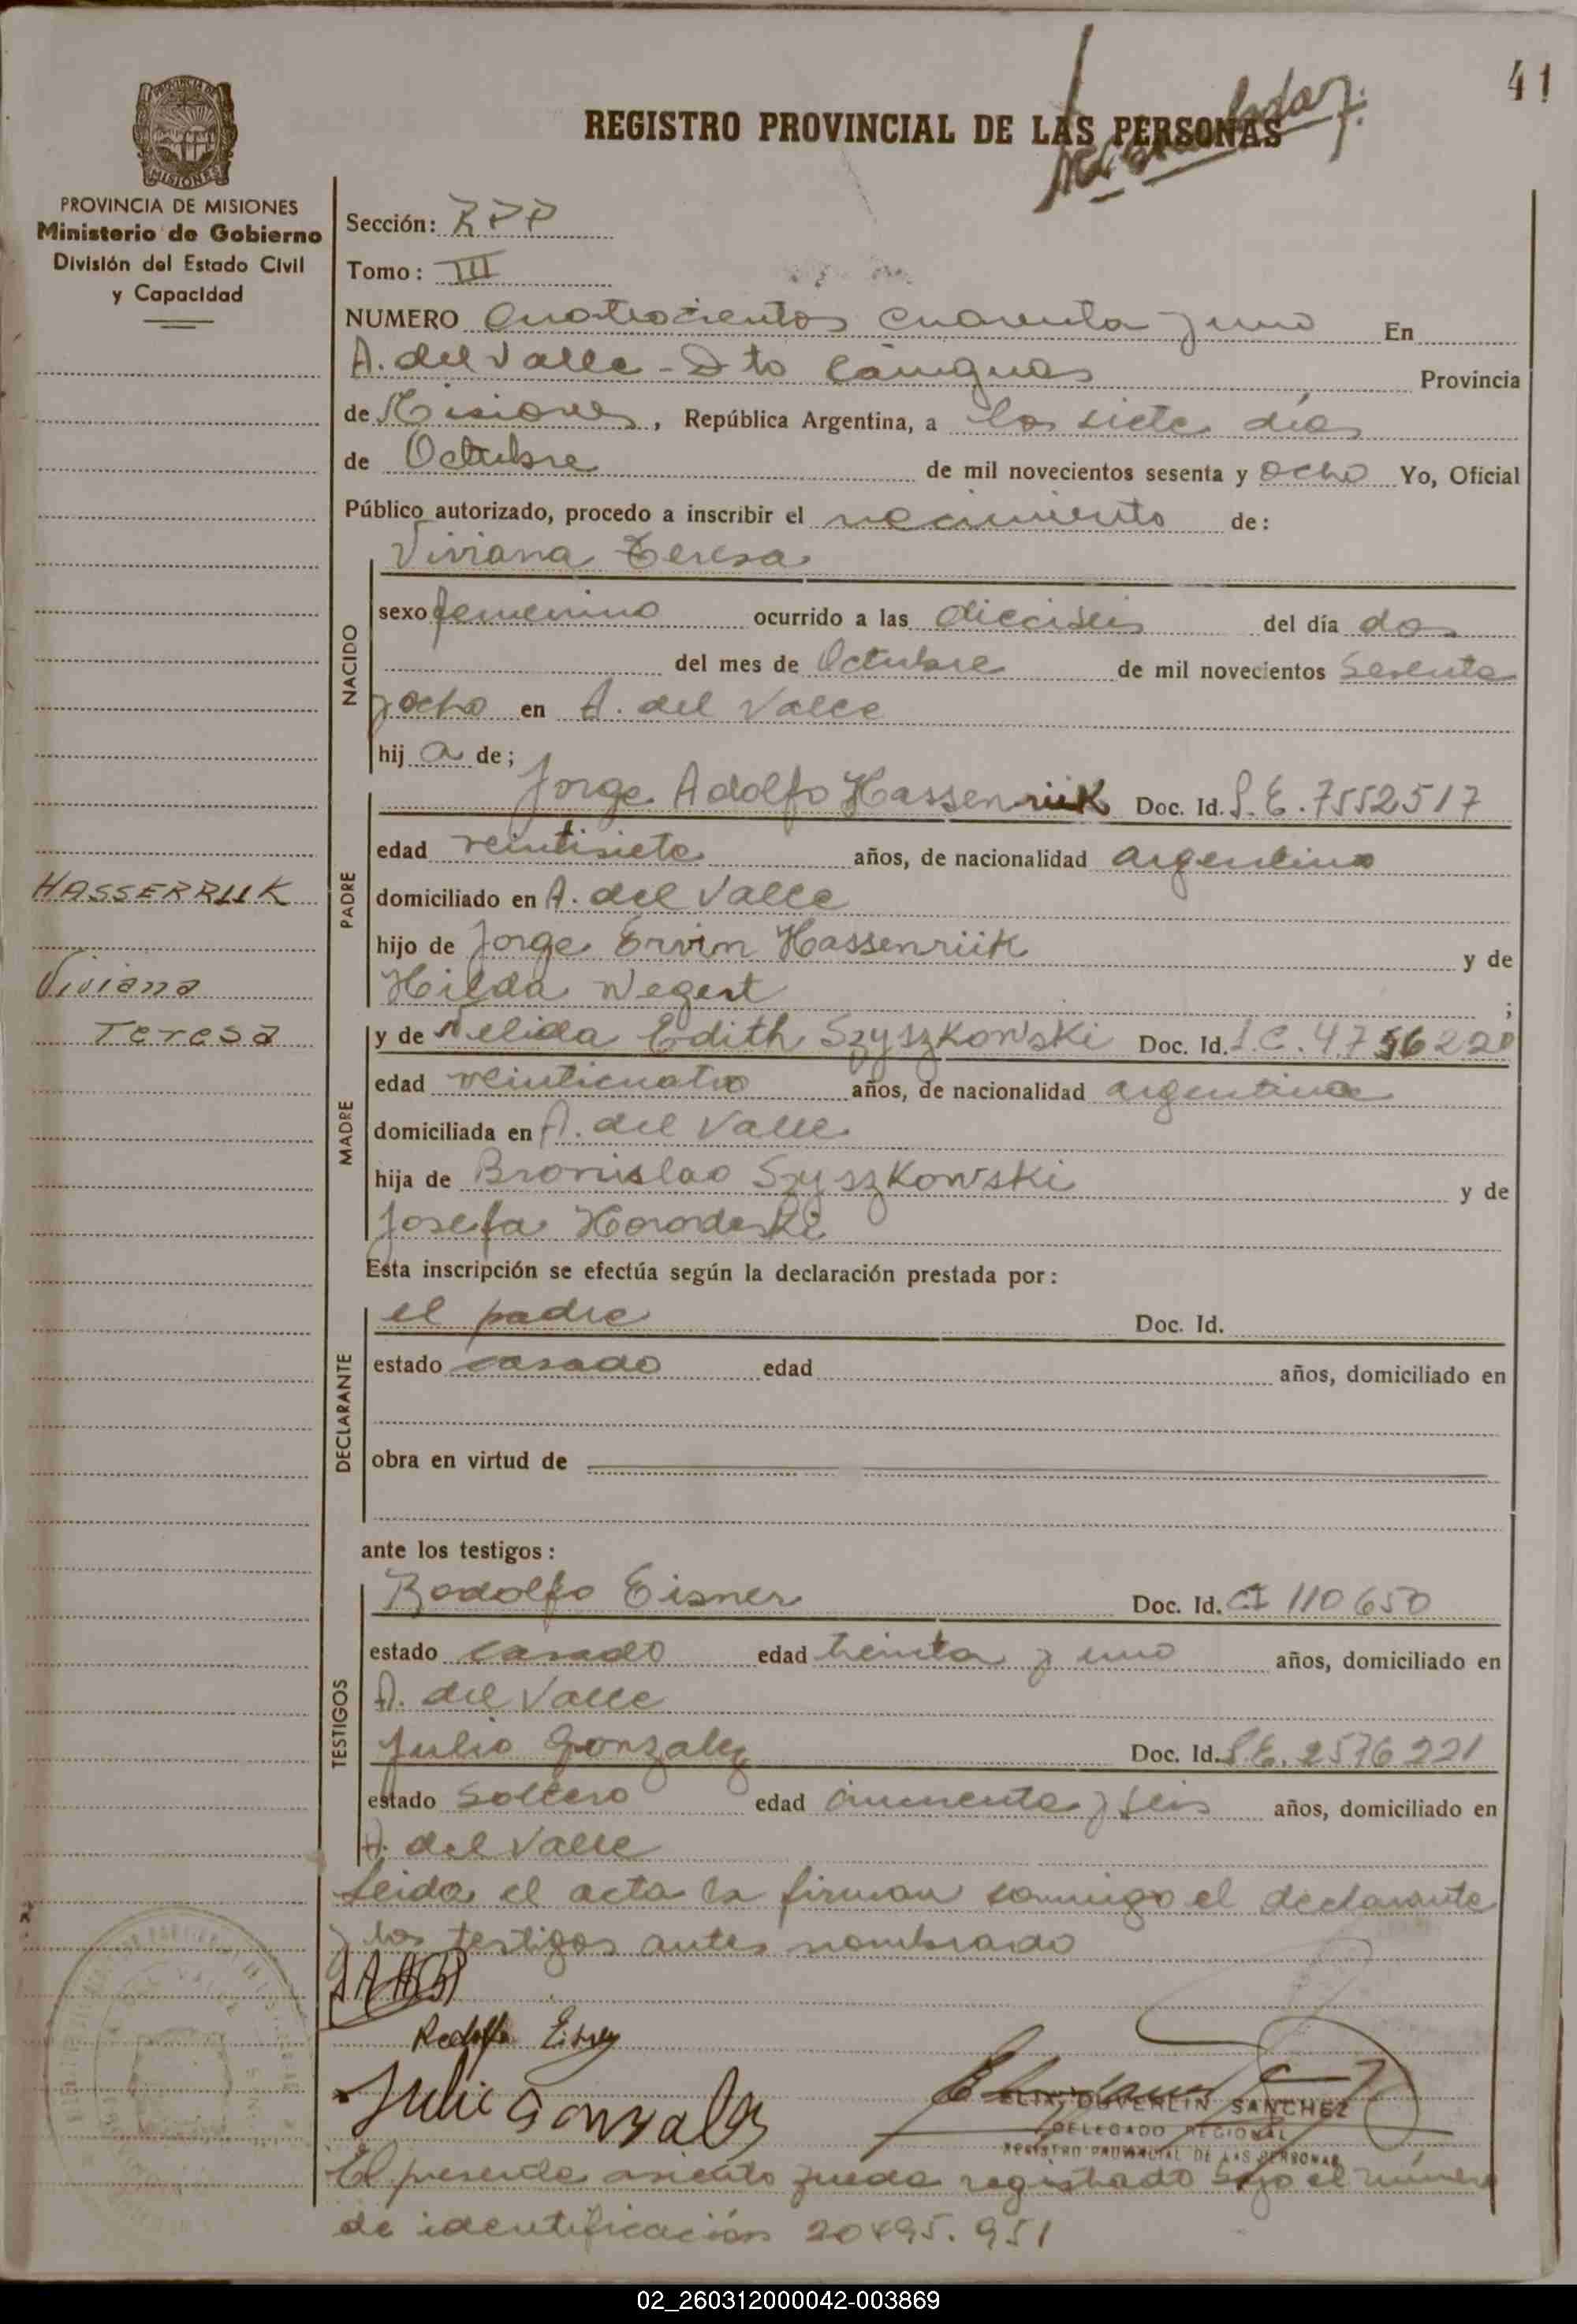 41
REGISTRO PROVINCIAL DE LAS PERSONAS
PROVINCIA DE MISIONES
Ministerio de Gobierno
División del Estado Civil
y Capacidad
Sección:
Tomo: III
NUMERO Cuatrocientos cuarenta y uno En
A. del Valle - Dto Cainguas Provincia
de Misiones, República Argentina, a los siete días
de Octubre de mil novecientos sesenta y ocho Yo, Oficial
Público autorizado, procedo a inscribir el nacimiento de:
NACIDO
Viviana Teresa
sexo femenino ocurrido a las dieciseis del día dos
del mes de Octubre de mil novecientos sesenta
y ocho en A. del Valle
hija de;
PADRE
Jorge Adolfo Hassenriik Doc. Id. L.E. 7552517
edad veintisiete años, de nacionalidad argentina
domiciliado en A. del Valle
HASSERRIIK
hijo de Jorge Ervin Hassenriik y de
Viviana
Hilda Wegert ;
Teresa
MADRE
y de Nelida Edith Szyszkowski Doc. Id. L.C. 4.756220
edad veinticuatro años, de nacionalidad argentina
domiciliada en A. del Valle
hija de Bronislao Szyszkowski y de
Josefa Horodeski
Esta inscripción se efectúa según la declaración prestada por:
DECLARANTE
el padre Doc. Id.
estado casado edad años, domiciliado en
obra en virtud de
ante los testigos:
TESTIGOS
Rodolfo Eisner Doc. Id. CI 110650
estado casado edad treinta y uno años, domiciliado en
A. del Valle
Julio Gonzalez Doc. Id. L.E. 2576221
estado soltero edad cincuenta y seis años, domiciliado en
A. del Valle
Leida el acta la firman conmigo el declarante
y los testigos antes nombrado
Rodolfo Eisner
Julio Gonzalez
ELIA DUVERLIN SANCHEZ
DELEGADO REGIONAL
REGISTRO PROVINCIAL DE LAS PERSONAS
El presente asiento queda registrado bajo el número
de identificación 20495.951
02_260312000042-003869